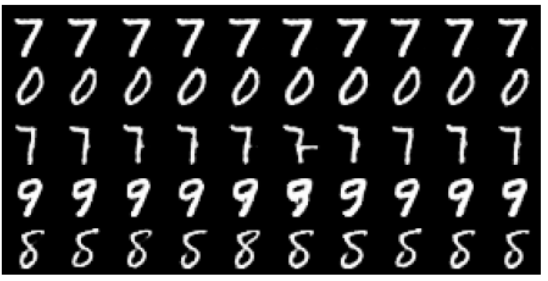 7 7 7 7 7 7 7 7 7 7
0 0 0 0 0 0 0 0 0 0
7 7 7 7 7 7 7 7 7
9 9 9 9 9 9 9 9 9
8 5 8 5 8 8 5 5 8 8